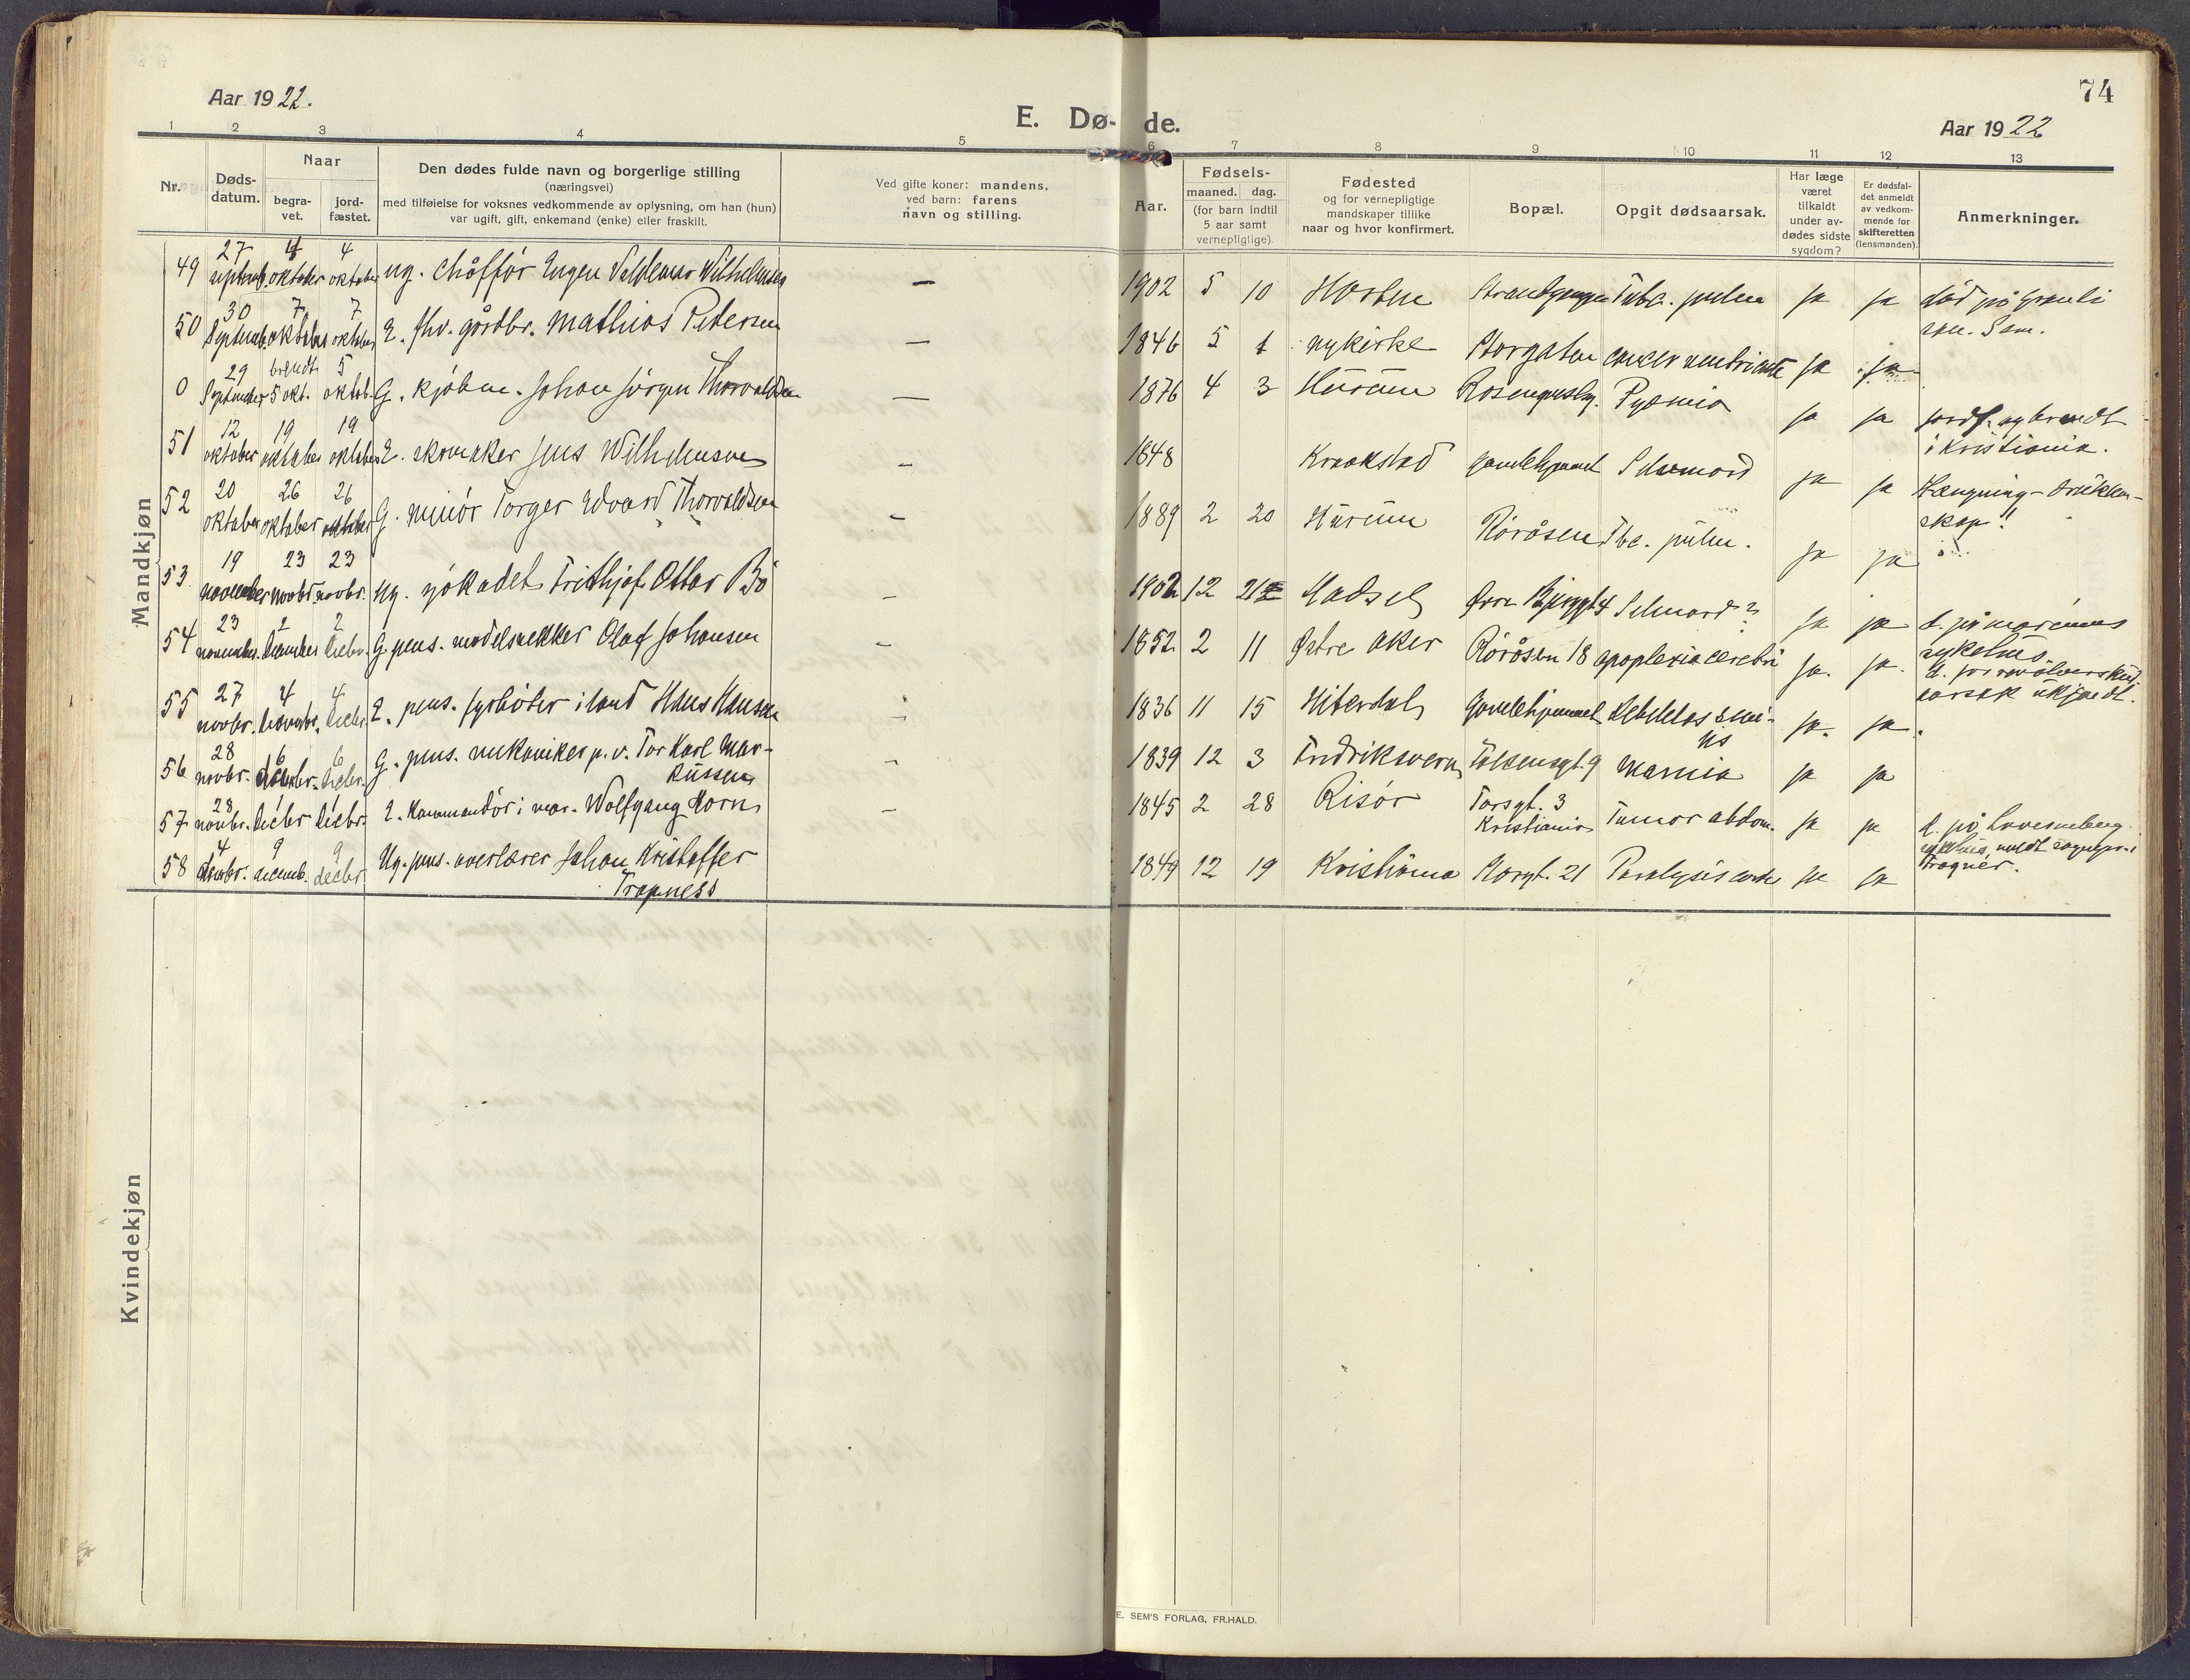 Aar 1922.
E. Dø-de.
74
Aar 1922
1 2 3 4 5 6 7 8 9 10 11 12 13
Nr.
Døds-
datum.
Naar
begra-
vet.
jord-
fæstet.
Den dødes fulde navn og borgerlige stilling
(næringsvei)
med tilføielse for voksnes vedkommende av oplysning, om han (hun)
var ugift, gift, enkemand (enke) eller fraskilt.
Ved gifte koner: mandens,
ved barn: farens
navn og stilling.
Aar.
Fødsels-
maaned. dag.
(for barn indtil
5 aar samt
vernepligtige)
Fødested
og for vernepligtige
mandskaper tillike
naar og hvor konfirmert.
Bopæl.
Opgit dødsaarsak.
Har læge
været
tilkaldt
under av-
dødes sidste
sygdom?
Er dødsfal-
det anmeldt
av vedkom-
mende for
skifteretten
(lensmanden).
Anmerkninger.
Mandkjøn
49 27 septemb. 4 oktober 4 oktober ug. chåffør Eugen Valdemar Wilhelmsen — 1902 5 10 Horten Strandgangen Tubc. pulm ja ja død på Grauli
san. Sem.
50 30 Septemb. 7 oktober 7 oktober E. fhv. gårdbr. Mathias Petersen — 1846 5 1 Nykirke Storgaten cancer ventriculi ja ja
0 29 September brendt 5 okt. 5 oktob. G. kjøbm. Johan Jørgen Thorvaldsen — 1876 4 3 Hurum Pyæmia ja ja jordf. og brendt
i Kristiania.
51 12 oktober 19 oktober 19 oktober E. skomaker Jens Wilhelmsen — 1848 Kraakstad Gamlehjemmet Selvmord ja ja Hængning - drukken-
skap!
52 20 oktober 26 oktober 26 oktober G. minør Torger Edvard Thorvaldsen — 1889 2 20 Hurum Røråsen Tbc. pulm. ja ja
53 19 november 23 novbr. 23 novbr. ug. sjøkadet Frithjof Ottar Bö — 1902 12 21 Hadsel Selmord? ja ja d. på marinens
sykehus
d. for revolverskud,
aarsak ukjendt.
54 23 november. 2 december 2 decbr. G. pens. modelsnekker Olaf Johansen — 1852 2 11 Østre Aker Røråsen 18 apoplexia cerebri ja. ja.
55 27 novbr. 4 decembr. 4 decbr. E. pens. fyrbøter i land Hans Hansen — 1836 11 15 Hiterdal Gamlehjemmet Debilitas seni-
lis ja. ja.
56 28 novbr. 6 decembr. 6 decbr. G. pens. mekaniker p. v. Tor Karl Mar-
kussen — 1839 12 3 Fredriksvern Folsensgt. 9 Uræmia ja ja
57 28 novbr. 1 decbr 1 decbr. E. Kommandør i mar. Wolfgang Horn — 1845 2 28 Risør Torsgt. 3
Kristiania Tumor abdom. ja ja d. på Lovisenberg
sykehus, meldt sogneprest i
Frogner.
58 4 decbr. 9 decemb. 9 decbr Ug. pens. overlærer Johan Kristoffer
Trapness 1849 12 19 Kristiania Storgt. 21 Paralysis cordis ja ja
Kvindekjøn
E. SEM'S FORLAG, FR.HALD.